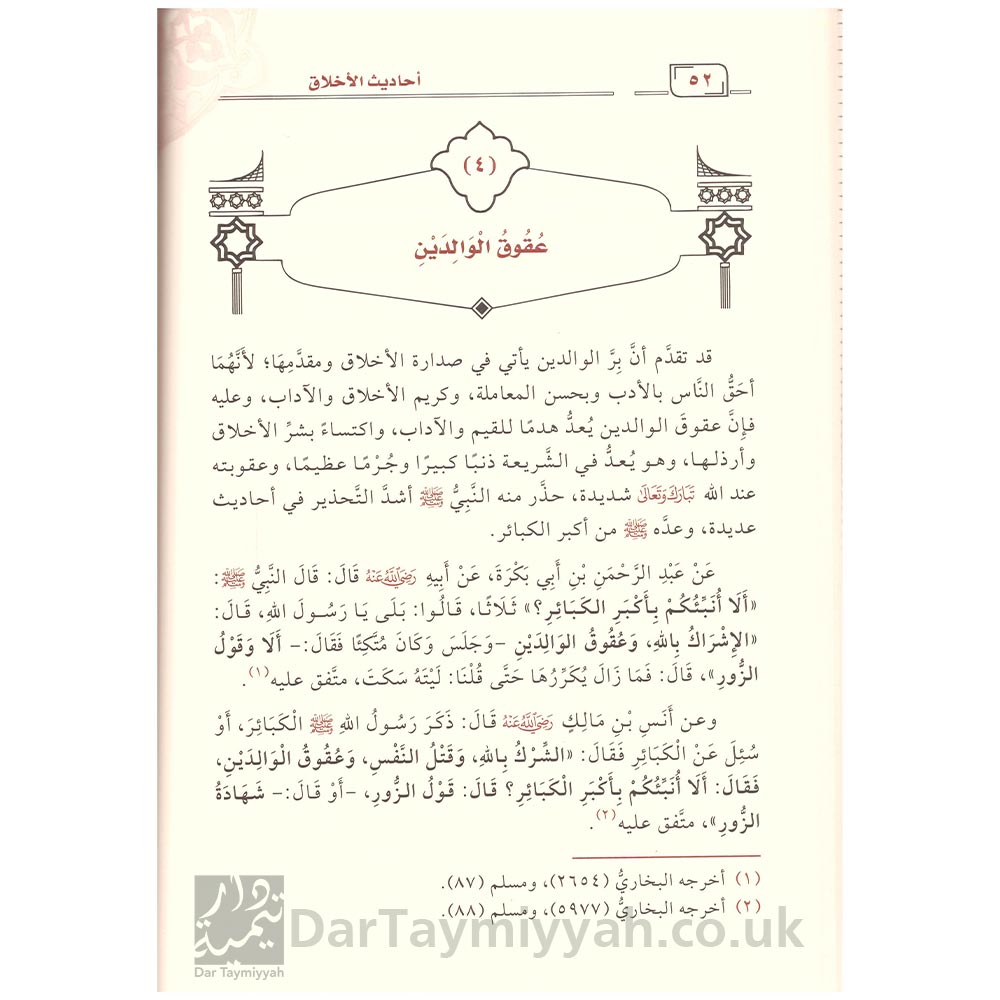 ٥٢
أحاديث الأخلاق
(٤)
عُقُوقُ الْوَالِدَيْنِ
قد تقدَّم أنَّ بِرَّ الوالدين يأتي في صدارة الأخلاق ومقدَّمِهَا؛ لأَنَّهُمَا
أحَقُّ النَّاس بالأدب وبحسن المعاملة، وكريم الأخلاق والآداب، وعليه
فإنَّ عقوقَ الوالدين يُعدُّ هدمًا للقيم والآداب، واكتساءً بشرِّ الأخلاق
وأرذلها، وهو يُعدُّ في الشَّريعة ذنبًا كبيرًا وجُرْمًا عظيمًا، وعقوبته
عند الله تَبَارَكَ وَتَعَالَى شديدة، حذَّر منه النَّبِيُّ ﷺ أشدَّ التَّحذير في أحاديث
عديدة، وعدَّه ﷺ من أكبر الكبائر.
عَنْ عَبْدِ الرَّحْمَنِ بْنِ أَبِي بَكْرَةَ، عَنْ أَبِيهِ رَضِيَ اللَّهُ عَنْهُ قَالَ: قَالَ النَّبِيُّ ﷺ:
«أَلَا أُنَبِّئُكُمْ بِأَكْبَرِ الكَبَائِرِ؟» ثَلَاثًا، قَالُوا: بَلَى يَا رَسُولَ اللهِ، قَالَ:
«الإِشْرَاكُ بِاللهِ، وَعُقُوقُ الوَالِدَيْنِ -وَجَلَسَ وَكَانَ مُتَّكِئًا فَقَالَ:- أَلَا وَقَوْلُ
الزُّورِ»، قَالَ: فَمَا زَالَ يُكَرِّرُهَا حَتَّى قُلْنَا: لَيْتَهُ سَكَتَ، متَّفق عليه(١).
وعن أَنَسِ بْنِ مَالِكٍ رَضِيَ اللَّهُ عَنْهُ قَالَ: ذَكَرَ رَسُولُ اللهِ ﷺ الْكَبَائِرَ، أَوْ
سُئِلَ عَنْ الْكَبَائِرِ فَقَالَ: «الشِّرْكُ بِاللهِ، وَقَتْلُ النَّفْسِ، وَعُقُوقُ الْوَالِدَيْنِ،
فَقَالَ: أَلَا أُنَبِّئُكُمْ بِأَكْبَرِ الْكَبَائِرِ؟ قَالَ: قَوْلُ الزُّورِ، -أَوْ قَالَ:- شَهَادَةُ
الزُّورِ»، متَّفق عليه(٢).
(١) أخرجه البخاريُّ (٢٦٥٤)، ومسلم (٨٧).
(٢) أخرجه البخاريُّ (٥٩٧٧)، ومسلم (٨٨).
دار تيمية
Dar Taymiyyah
DarTaymiyyah.co.uk